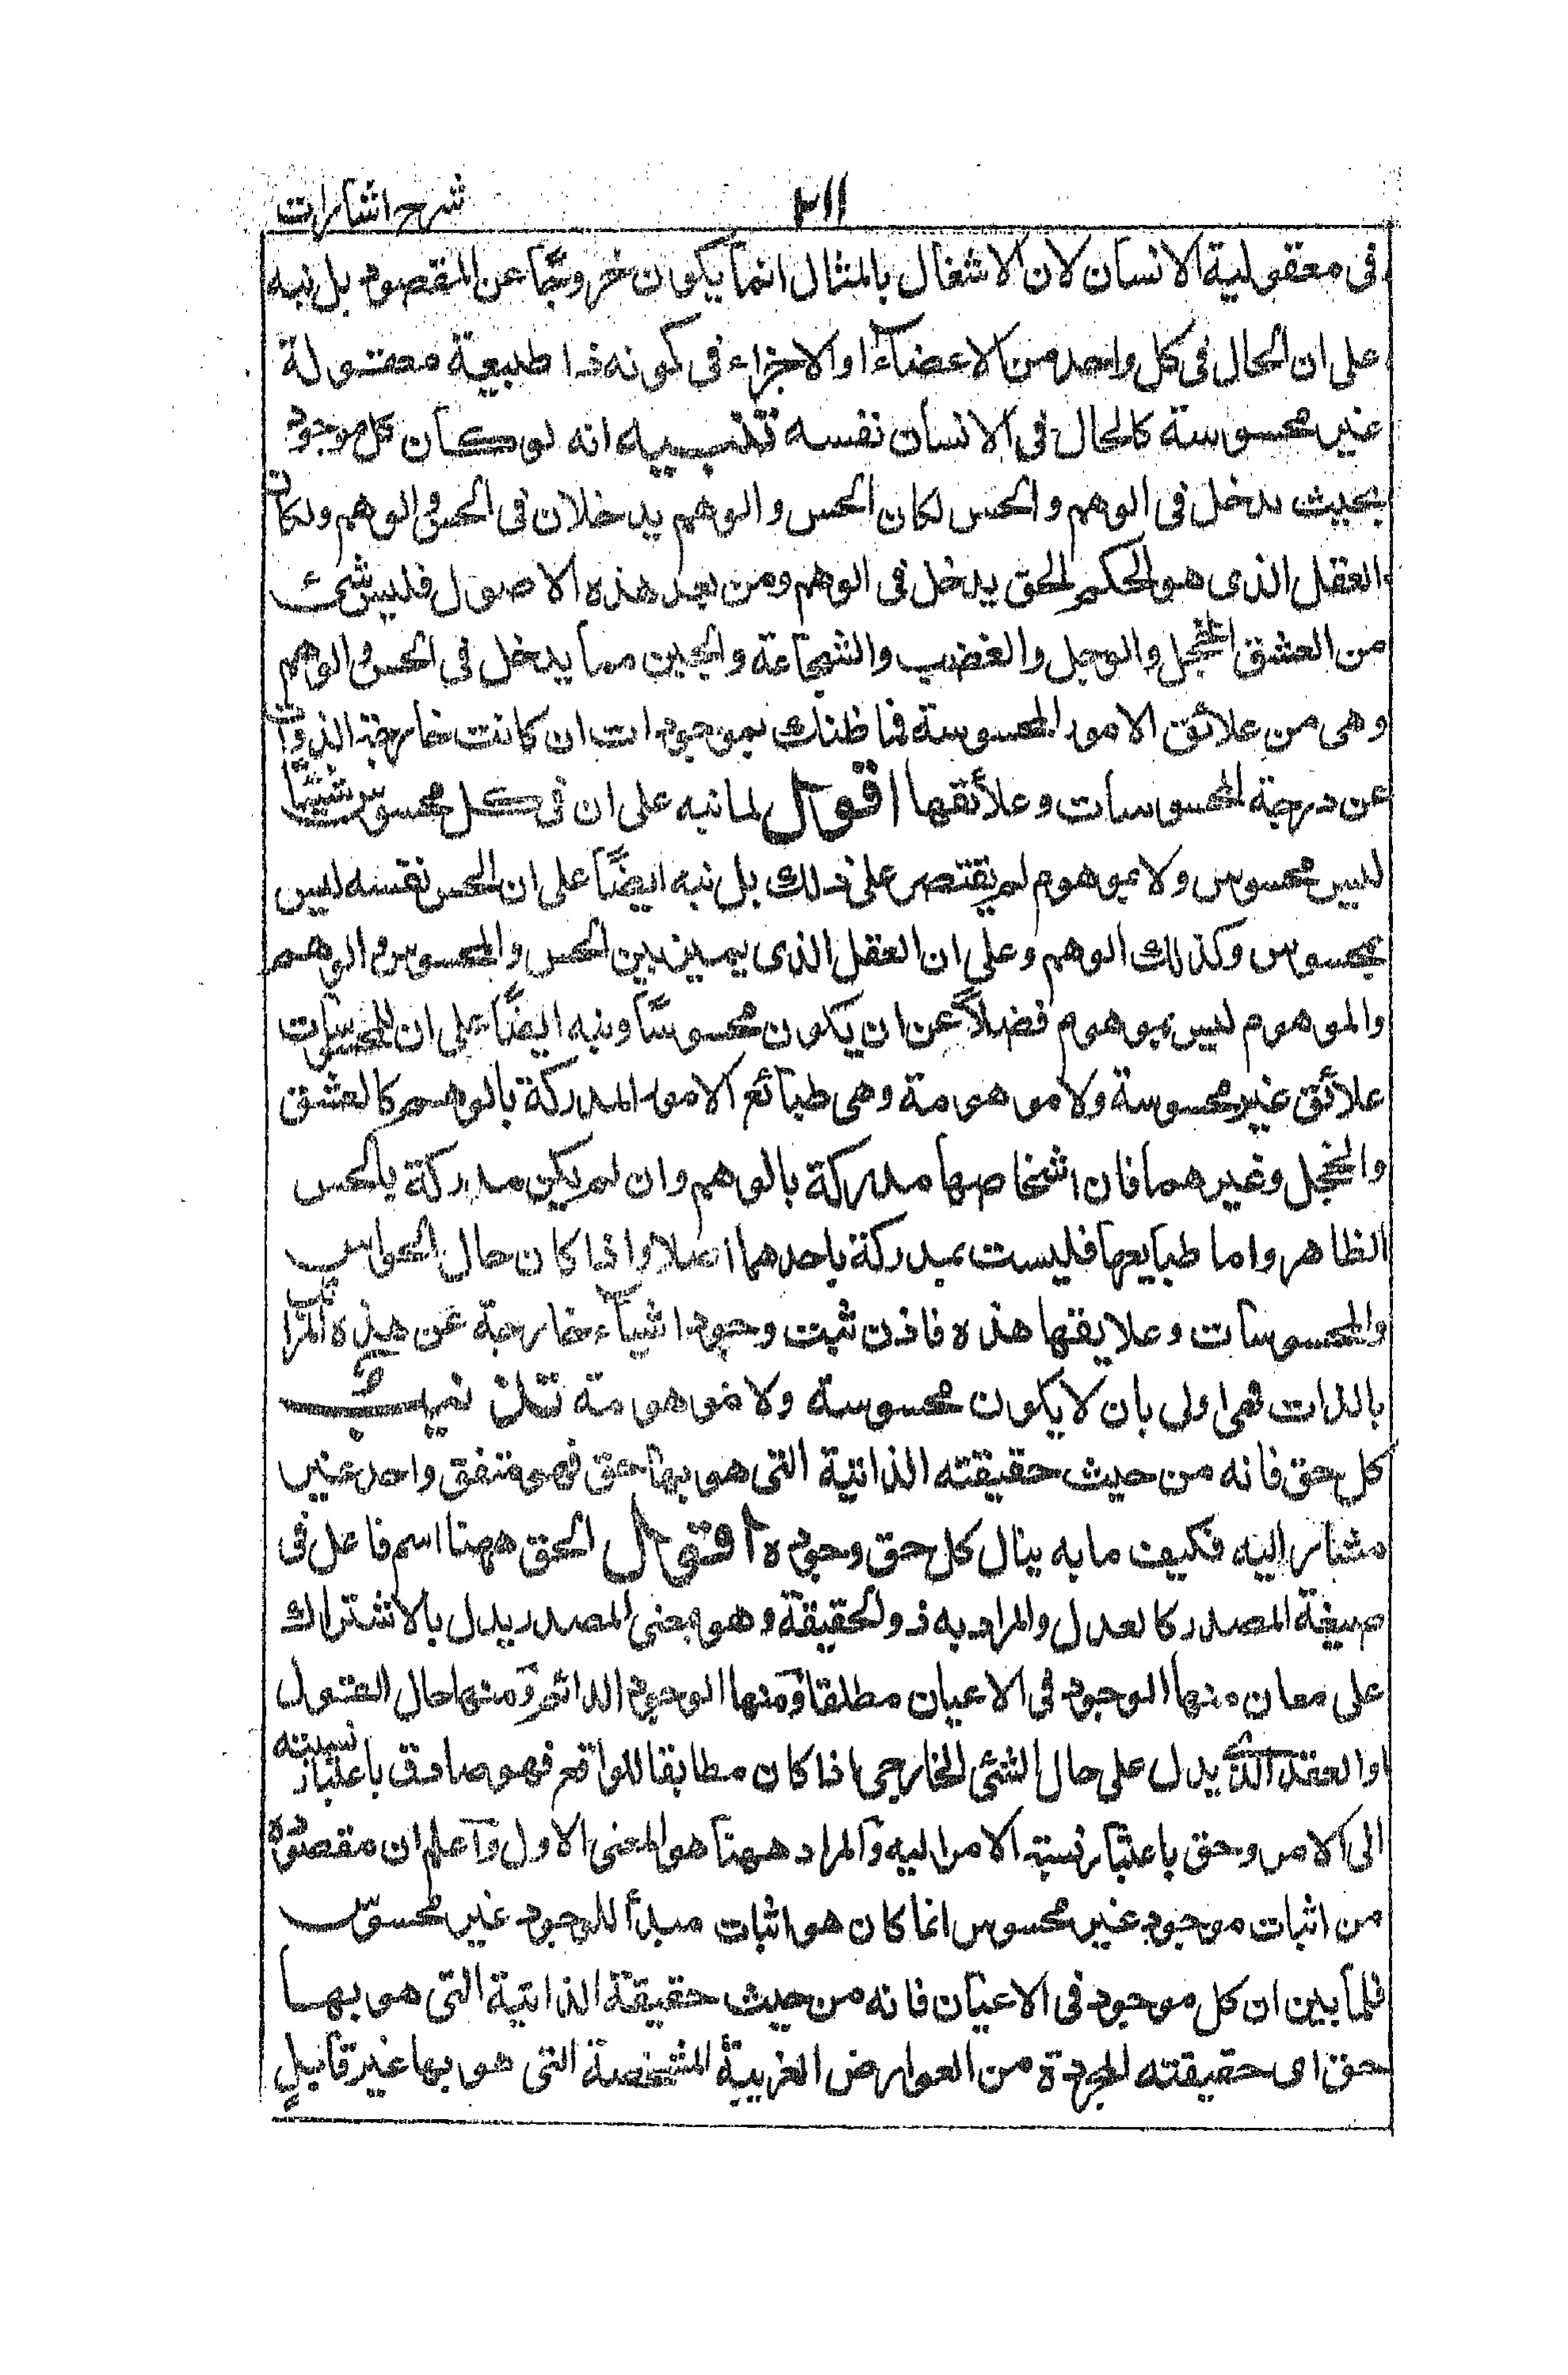 شرح اشارات
٢١١
فى معقولية الانسان لان الاشغال بالمثال انما يكون خروجًا عن المقصود بل نبه
على ان الحال فى كل واحد من الاعضآء او الاجزاء فى كونه ذا طبيعة معقولة
غير محسوسة كالحال فى الانسان نفسه تنبيه انه لو كان كل موجود
بحيث يدخل فى الوهم والحس لكان الحس والوهم يدخلان فى الحس والوهم ولكان
العقل الذى هو الحكم الحق يدخل فى الوهم ومن بعد هذه الاصول فليس شئ
من العشق والخجل والوجل والغضب والشجاعة والجبن مما يدخل فى الحس والوهم
وهى من علائق الامور المحسوسة فما ظنك بموجودات ان كانت خارجة الذوات
عن درجة المحسوسات وعلائقها اقول لما نبه على ان فى كل محسوس شيئا
ليس محسوس ولا بموهوم لم يقتصر على ذلك بل نبه ايضًا على ان الحس نفسه ليس
بمحسوس وكذلك الوهم وعلى ان العقل الذى يميز بين الحس والمحسوس والوهم
والموهوم ليس بموهوم فضلاً عن ان يكون محسوسًا ونبه ايضًا على ان للمحسوسات
علائق غير محسوسة ولا موهومة وهى طبائع الامور المدركة بالوهم كالعشق
والخجل وغيرهما فان اشخاصها مدركة بالوهم وان لم يكن مدركة بالحس
الظاهر واما طبايعها فليست بمدركة باحدهما اصلا واذا كان حال الحواس
والمحسوسات وعلايقها هذه فاذن ثبت وجود اشيآء خارجة عن هذه المراتب
بالذات فهى اولى بان لا يكون محسوسة ولا موهومة تذنيب
كل حق فانه من حيث حقيقته الذاتية التى هو بها حق فهو متفق واحد غير
مشار اليه فكيف ما به ينال كل حق وجوده اقول الحق ههنا اسم فاعل فى
صيغة المصدر كالعدل والمراد به ذو الحقيقة وهو بمعنى المصدر يدل بالاشتراك
على معان منها الوجود فى الاعيان مطلقا ومنها الوجود الدائم ومنها حال القول
او العقد الذى يدل على حال الشئ الخارجى اذا كان مطابقا للواقع فهو صادق باعتبار نسبته
الى الامر وحق باعتبار نسبة الامر اليه والمراد ههنا هو المعنى الاول واعلم ان مقصوده
من اثبات موجود غير محسوس انما كان هو اثبات مبدأ للوجود غير محسوس
فلما بين ان كل موجود فى الاعيان فانه من حيث حقيقة الذاتية التى هو بها
حق اى حقيقته المجردة من العوارض الغريبة المشخصة التى هو بها غير قابل